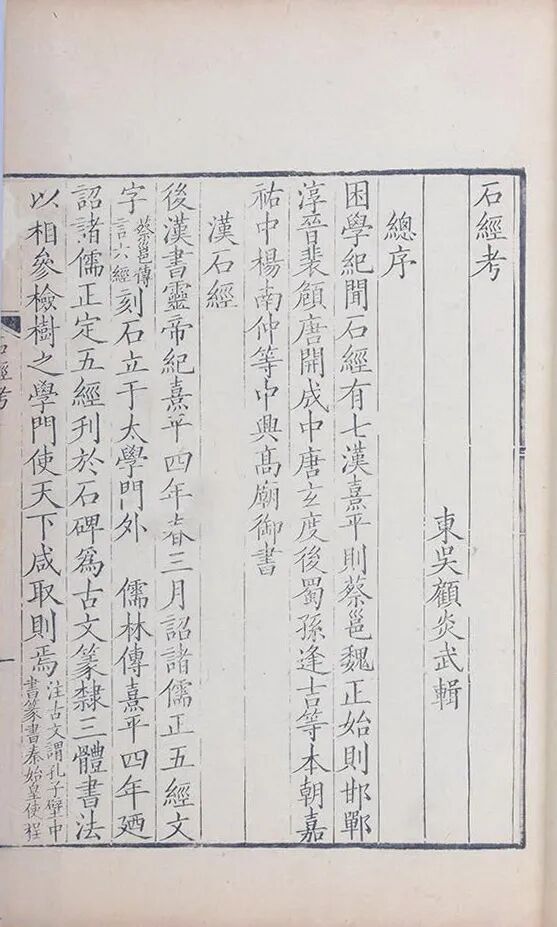 石經考
東吳顧炎武輯
總序
困學紀聞石經有七漢熹平則蔡邕魏正始則邯鄲
淳晉裴頠唐開成中唐玄度後蜀孫逢吉等本朝嘉
祐中楊南仲等中興高廟御書
漢石經
後漢書靈帝紀熹平四年春三月詔諸儒正五經文
字蔡邕傳言六經刻石立于太學門外 儒林傳熹平四年廼
詔諸儒正定五經刊於石碑爲古文篆隸三體書法
以相參檢樹之學門使天下咸取則焉注古文謂孔子壁中書篆書秦始皇使程
石經考